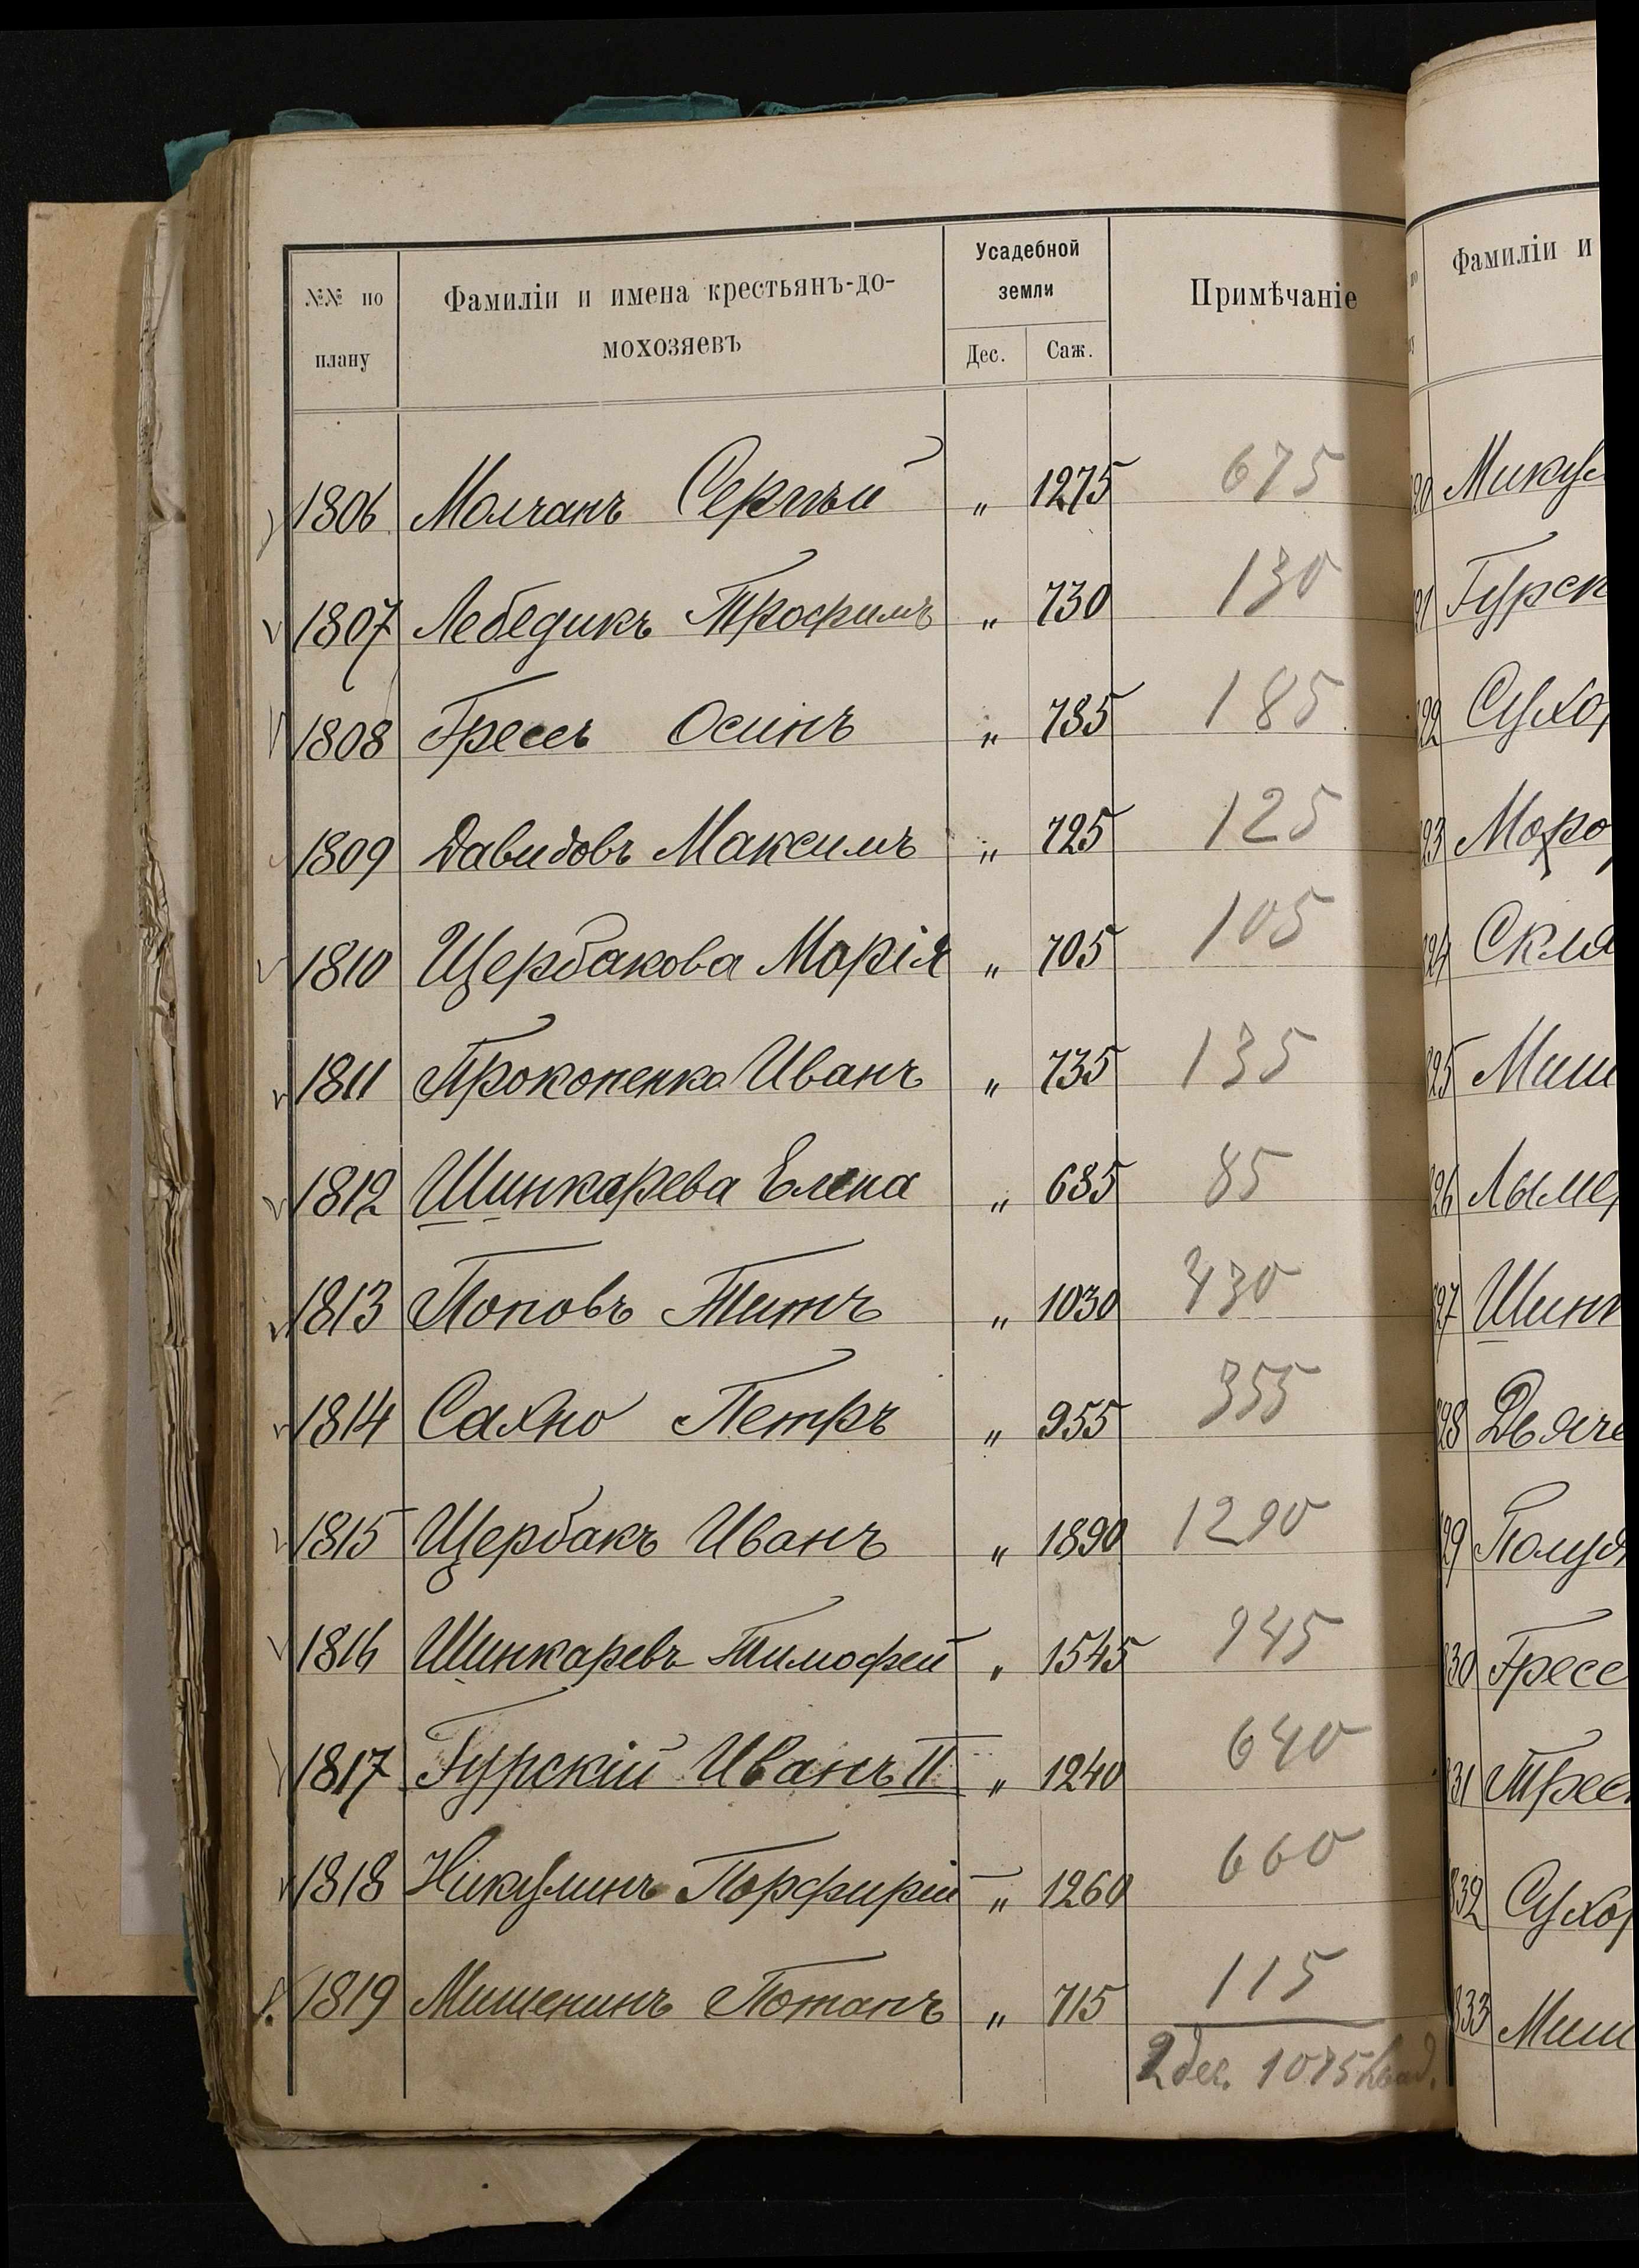 №№ по плану
Фамиліи и имена крестьянъ-до-
мохозяевъ
Усадебной
земли
Дес. Саж.
Примѣчаніе
1806 Молчанъ Сергѣй „ 1275 675
1807 Лебедикъ Трофимъ „ 730 130
1808 Грессъ Осипъ „ 785 185
1809 Давидовъ Максимъ „ 725 125
1810 Щербакова Марія „ 705 105
1811 Прокопенко Иванъ „ 735 135
1812 Шинкарева Елена „ 685 85
1813 Поповъ Титъ „ 1030 430
1814 Сахно Петръ „ 955 355
1815 Щербакъ Иванъ „ 1890 1290
1816 Шинкаревъ Тимофей „ 1545 945
1817 Гурскій Иванъ II „ 1240 640
1818 Никулинъ Порфирій „ 1260 660
1819 Мишенинъ Потапъ „ 715 115
2 дес. 1075 квад.
Фамиліи и
20 Микул
21 Гурск
22 Сухор
23 Моро
24 Скля
25 Миш
26 Лымар
27 Шинк
28 Дьяче
29 Полуя
830 Гресс
831 Трес
832 Сухор
833 Миш